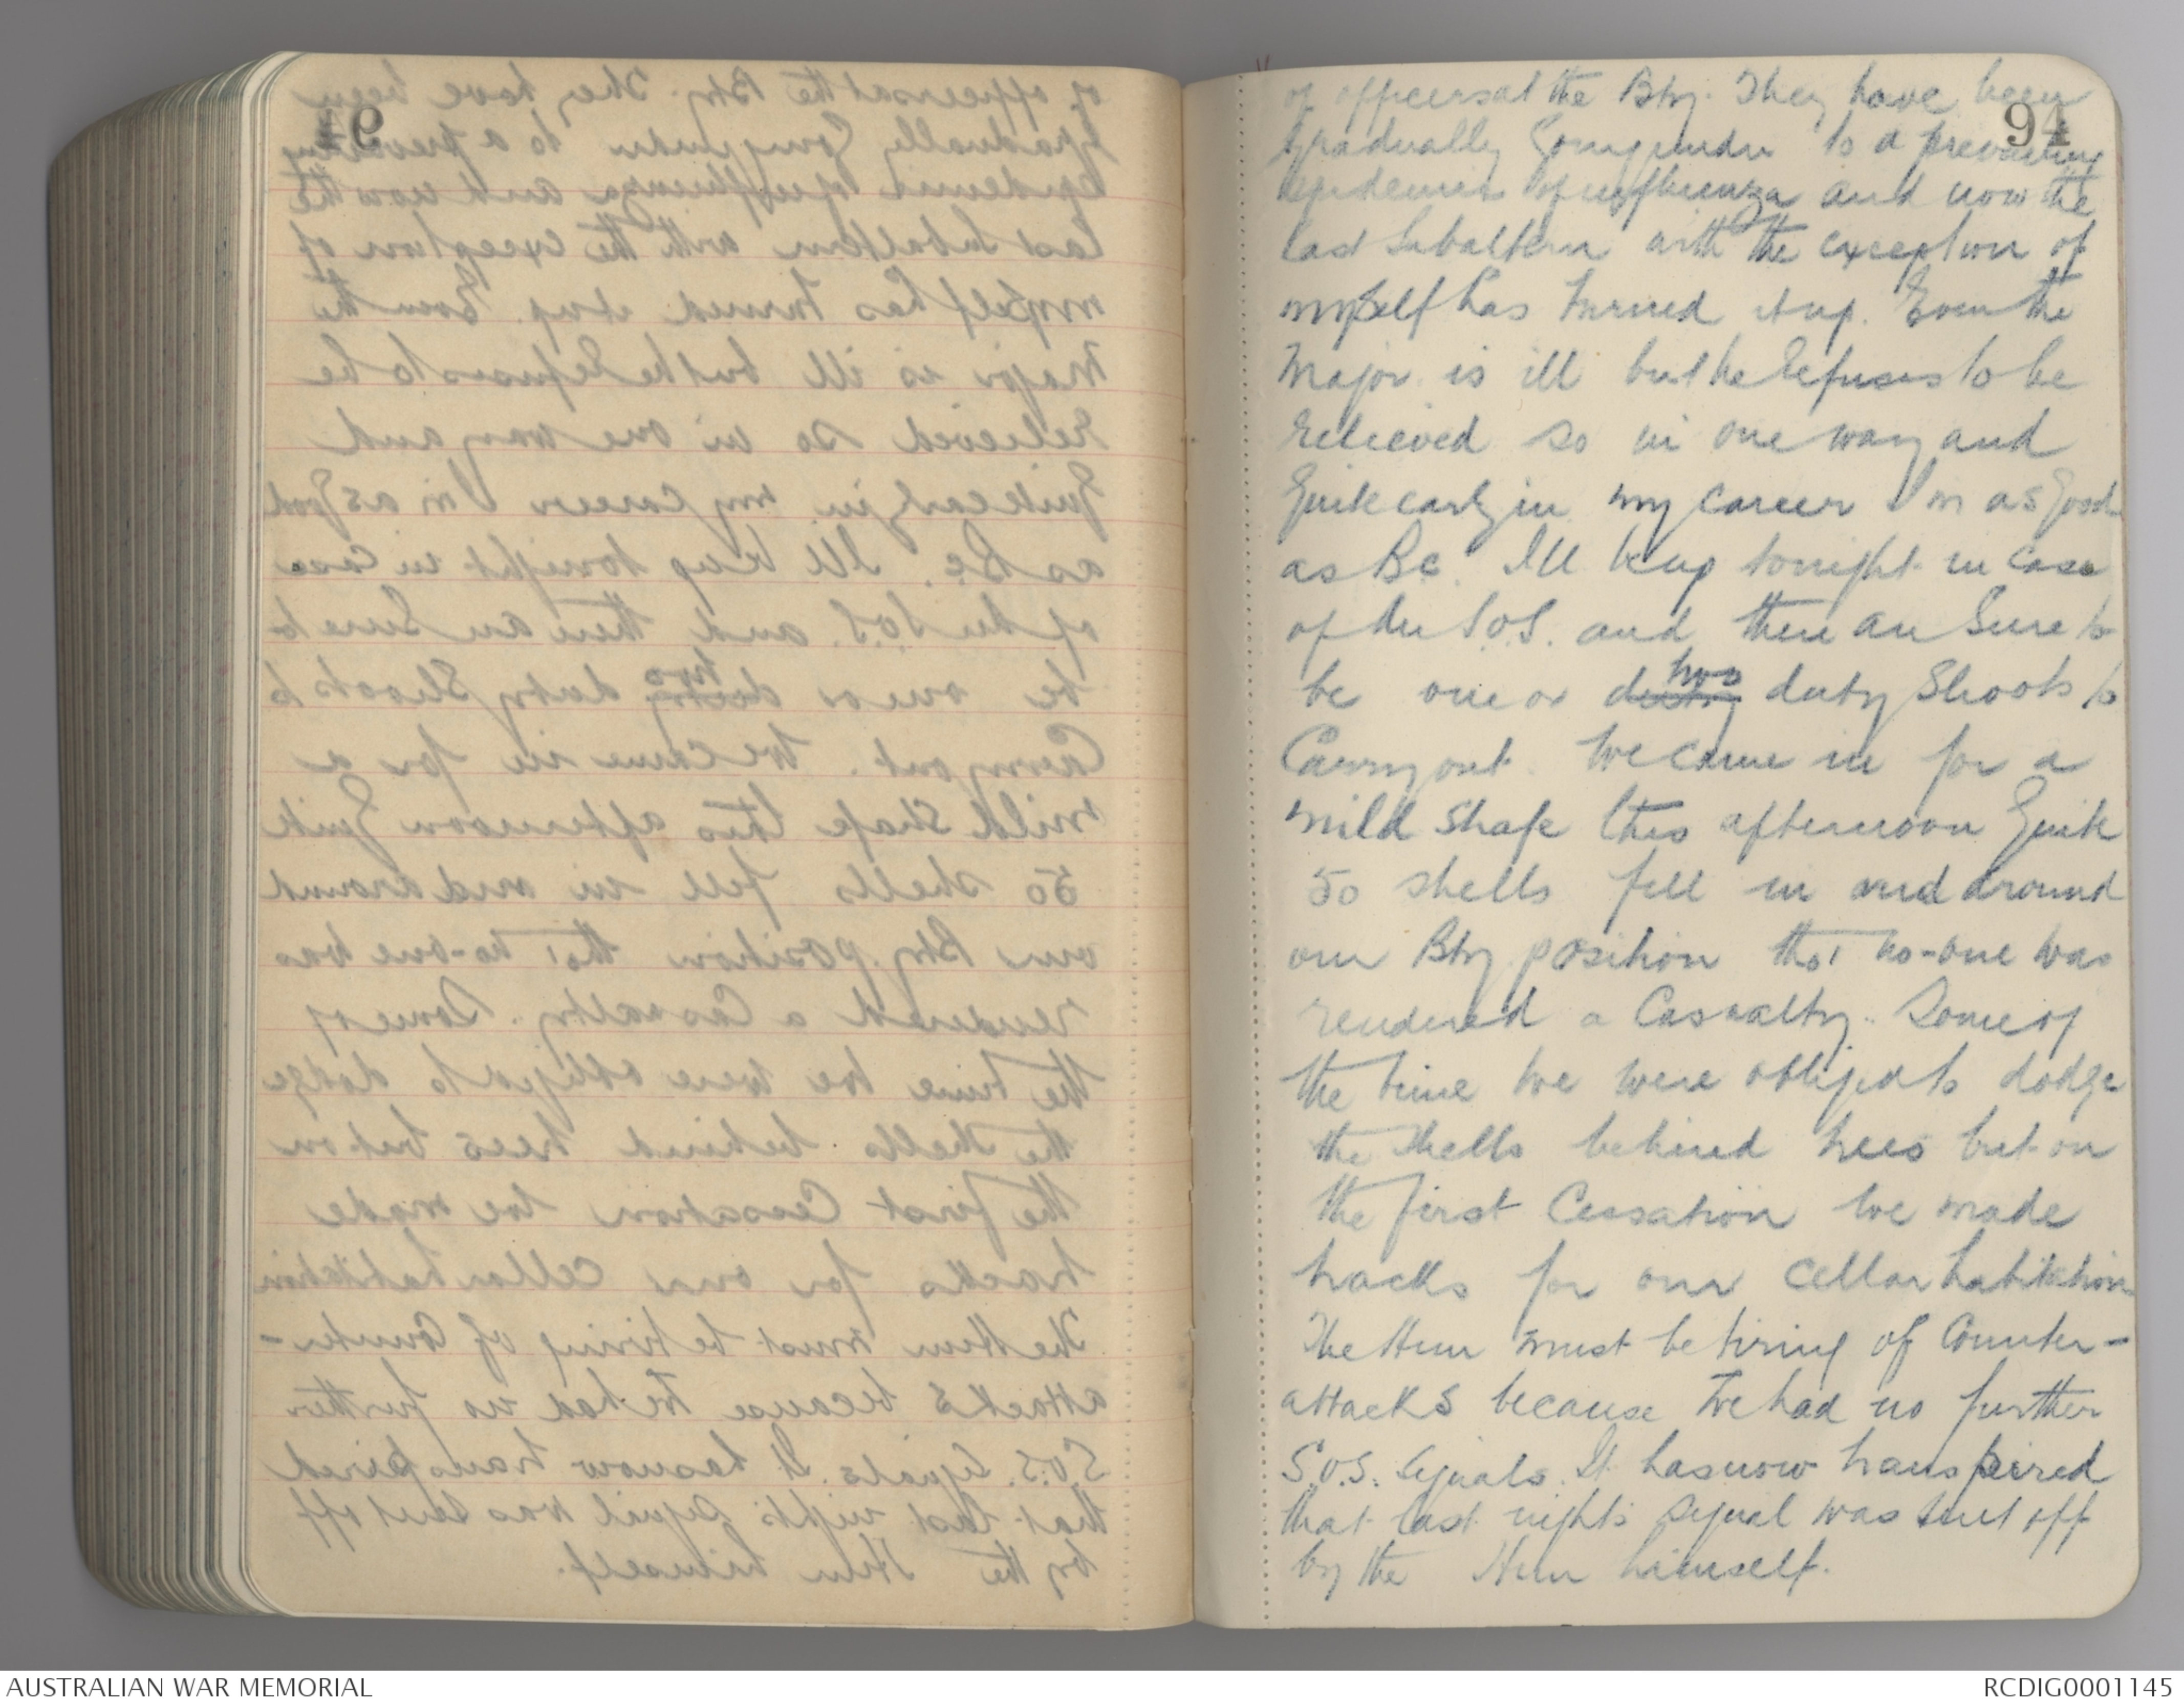 94
of officers at the Bty. They have been
gradually Succumbing to a prevailing
epidemic of influenza and now the
last Subaltern with the exception of
myself has turned it up. Even the
Major is ill but he refuses to be
relieved so in one way and
Quite early in my career I'm as good
as BC. I'll keep tonight in case
of an S.O.S. and there are Sure to
be one or duty two duty Shoots to
Carry out. We came in for a
mild Strafe this afternoon Quite
50 shells fell in and around
our Bty position tho' no-one was
rendered a Casualty. Some of
the time we were obliged to dodge
the shells behind trees but on
the first Cessation we made
tracks for our cellar habitation
The Hun must be tiring of Counter-
attacks because We had no further
S.O.S. Signals. It has now transpired
that last night's signal was sent off
by the Hun himself.
AUSTRALIAN WAR MEMORIAL
RCDIG0001145